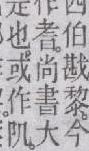 西伯戡黎。今
作耆。尚書大
是也。或作